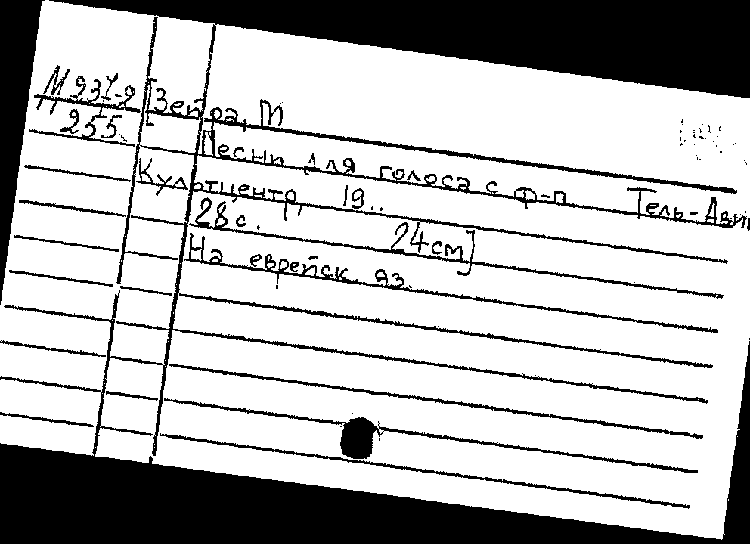 М 937-9 [Зейра, М
255.
Песни для голоса с ф-п Тель-Авив
Культцентр, 19..
28 с. 24 см]
На еврейск. яз.